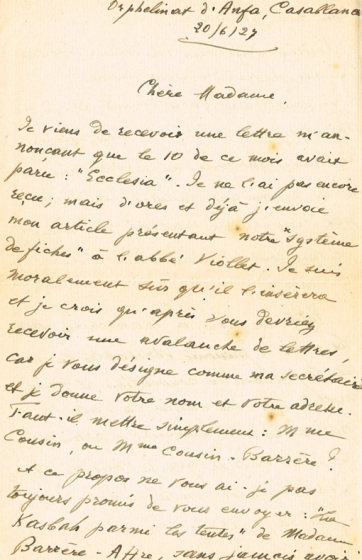 Orphelinat d'Anfa, Casablanca
20/6/27
Chère Madame,
Je viens de recevoir une lettre m'an-
nonçant que le 10 de ce mois avait
paru : "Ecclesia". Je ne l'ai pas encore
reçu; mais d'ores et déjà j'envoie
mon article présentant notre "système
de fiches" à l'abbé Viollet. Je suis
moralement sûr qu'il l'insèrera
et je crois qu'après vous devriez
recevoir une avalanche de lettres,
car je vous désigne comme ma secrétaire
et je donne votre nom et votre adresse.
Faut-il mettre simplement : Mme
Cousin, ou Mme Cousin-Barrère ?
A ce propos ne vous ai-je pas
toujours promis de vous envoyer : "La
Kasbah parmi les tentes" de Madame
Barrère-Affre, sans jamais avoir